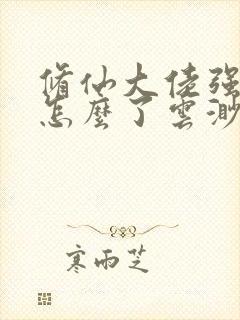 脩仙大佬强
怎麼了雲渺
寒雨芝